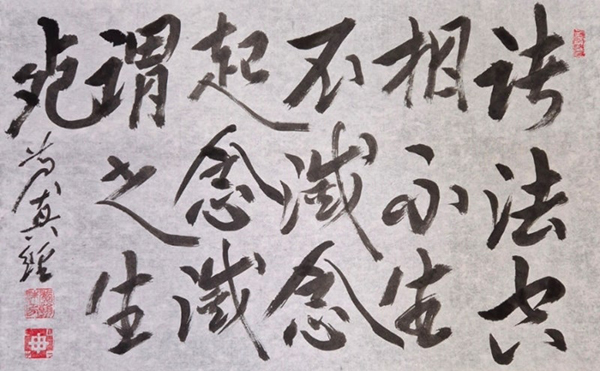 諸法空
相不生
不滅念
起念滅
謂之生
死